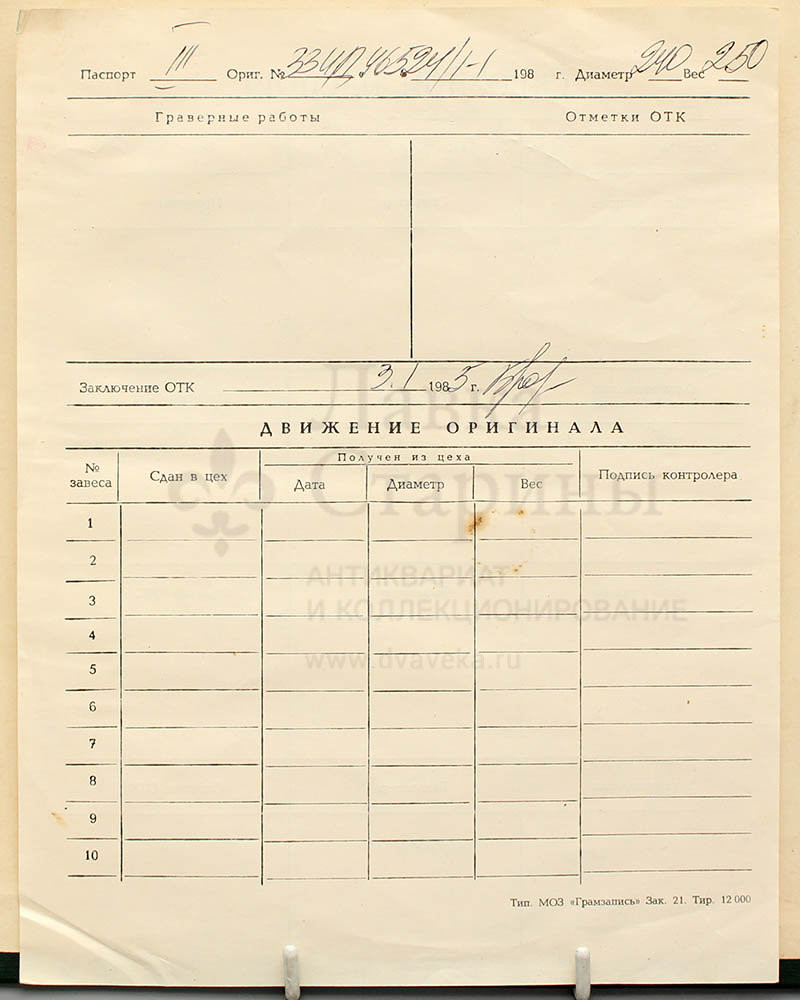 Паспорт III Ориг. № 33ЦД 46524/1-1 198 г. Диаметр 240 Вес 250
Граверные работы Отметки ОТК
Заключение ОТК 3.I 1985 г.
ДВИЖЕНИЕ ОРИГИНАЛА
№ завеса Сдан в цех Получен из цеха Подпись контролера
Дата Диаметр Вес
1
2
3
4
5
6
7
8
9
10
Лавка
Старины
АНТИКВАРИАТ
И КОЛЛЕКЦИОНИРОВАНИЕ
www.dvaveka.ru
Тип. МОЗ «Грамзапись» Зак. 21. Тир. 12 000